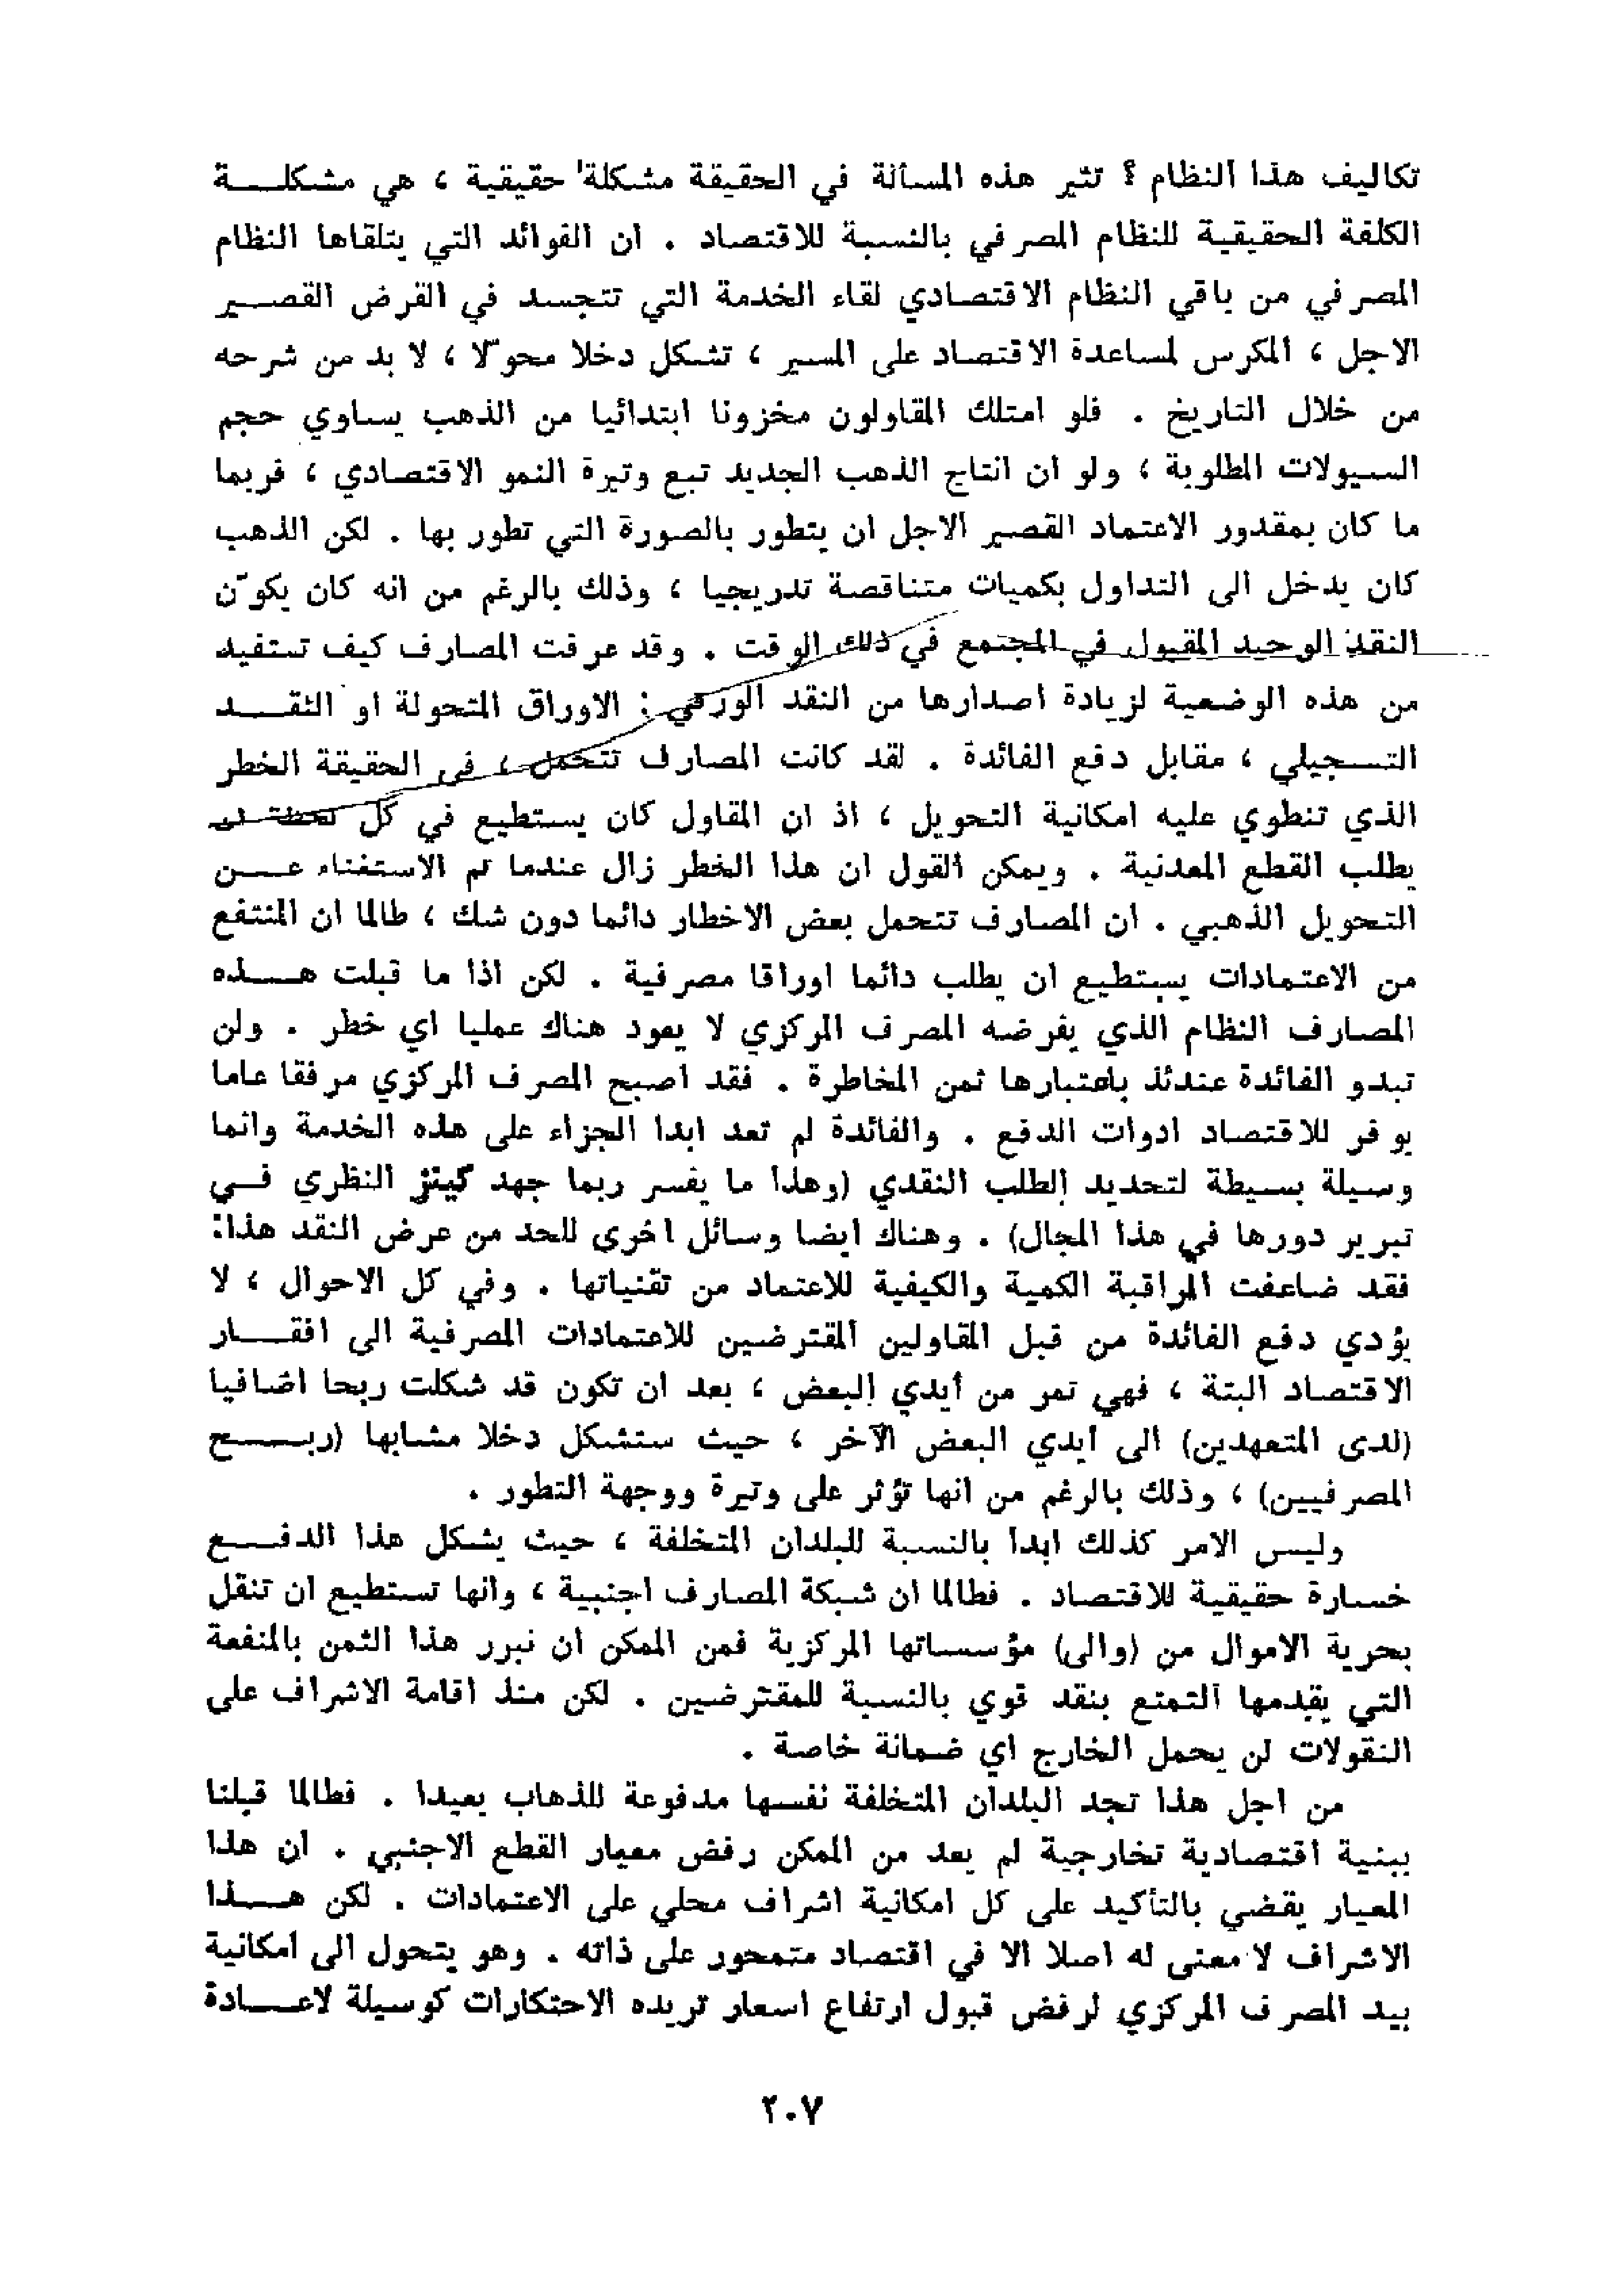 تكاليف هذا النظام ؟ تثير هذه المسألة في الحقيقة مشكلة حقيقية ، هي مشكلة
الكلفة الحقيقية للنظام المصرفي بالنسبة للاقتصاد . ان الفوائد التي يتلقاها النظام
المصرفي من باقي النظام الاقتصادي لقاء الخدمة التي تتجسد في القرض القصير
الاجل ، المكرس لمساعدة الاقتصاد على السير ، تشكل دخلا محوّلا ، لا بد من شرحه
من خلال التاريخ . فلو امتلك المقاولون مخزونا ابتدائيا من الذهب يساوي حجم
السيولات المطلوبة ، ولو ان انتاج الذهب الجديد تبع وتيرة النمو الاقتصادي ، فربما
ما كان بمقدور الاعتماد القصير الاجل ان يتطور بالصورة التي تطور بها . لكن الذهب
كان يدخل الى التداول بكميات متناقصة تدريجيا ، وذلك بالرغم من انه كان يكوّن
النقد الوحيد المقبول في المجتمع في ذلك الوقت . وقد عرفت المصارف كيف تستفيد
من هذه الوضعية لزيادة اصدارها من النقد الورقي : الاوراق المتحولة او النقد
التسجيلي ، مقابل دفع الفائدة . لقد كانت المصارف تتحمل ، في الحقيقة الخطر
الذي تنطوي عليه امكانية التحويل ، اذ ان المقاول كان يستطيع في كل لحظة ان
يطلب القطع المعدنية . ويمكن القول ان هذا الخطر زال عندما تم الاستغناء عن
التحويل الذهبي . ان المصارف تتحمل بعض الاخطار دائما دون شك ، طالما ان المنتفع
من الاعتمادات يستطيع ان يطلب دائما اوراقا مصرفية . لكن اذا ما قبلت هذه
المصارف النظام الذي يفرضه المصرف المركزي لا يعود هناك عمليا اي خطر . ولن
تبدو الفائدة عندئذ باعتبارها ثمن المخاطرة . فقد اصبح المصرف المركزي مرفقا عاما
يوفر للاقتصاد ادوات الدفع . والفائدة لم تعد ابدا الجزاء على هذه الخدمة وانما
وسيلة بسيطة لتحديد الطلب النقدي (وهذا ما يفسر ربما جهد كينز النظري في
تبرير دورها في هذا المجال) . وهناك ايضا وسائل اخرى للحد من عرض النقد هذا:
فقد ضاعفت المراقبة الكمية والكيفية للاعتماد من تقنياتها . وفي كل الاحوال ، لا
يؤدي دفع الفائدة من قبل المقاولين المقترضين للاعتمادات المصرفية الى افقار
الاقتصاد البتة ، فهي تمر من أيدي البعض ، بعد ان تكون قد شكلت ربحا اضافيا
(لدى المتعهدين) الى ايدي البعض الآخر ، حيث ستشكل دخلا مشابها (ربح
المصرفيين) ، وذلك بالرغم من انها تؤثر على وتيرة ووجهة التطور .
وليس الامر كذلك ابدا بالنسبة للبلدان المتخلفة ، حيث يشكل هذا الدفع
خسارة حقيقية للاقتصاد . فطالما ان شبكة المصارف اجنبية ، وانها تستطيع ان تنقل
بحرية الاموال من (والى) مؤسساتها المركزية فمن الممكن ان نبرر هذا الثمن بالمنفعة
التي يقدمها التمتع بنقد قوي بالنسبة للمقترضين . لكن منذ اقامة الاشراف على
النقولات لن يحمل الخارج اي ضمانة خاصة .
من اجل هذا تجد البلدان المتخلفة نفسها مدفوعة للذهاب بعيدا . فطالما قبلنا
ببنية اقتصادية تخارجية لم يعد من الممكن رفض معيار القطع الاجنبي . ان هذا
المعيار يقضي بالتأكيد على كل امكانية اشراف محلي على الاعتمادات . لكن هذا
الاشراف لا معنى له اصلا الا في اقتصاد متمحور على ذاته . وهو يتحول الى امكانية
بيد المصرف المركزي لرفض قبول ارتفاع اسعار تريده الاحتكارات كوسيلة لاعادة
٢٠٧